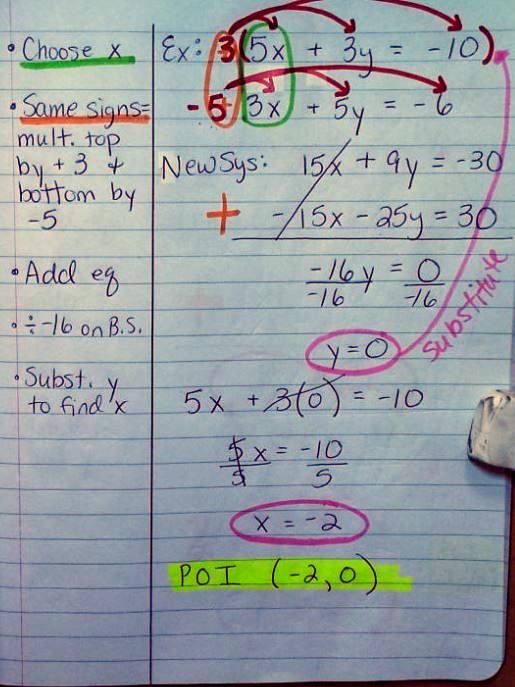 • Choose x
Ex: 3(5x + 3y = -10)
• Same signs=
mult. top
by + 3 &
bottom by
-5
-5 3x + 5y = -6
New Sys: 15x + 9y = -30
+ -15x - 25y = 30
• Add eq
-16y = 0
-16 -16
• ÷ -16 on B.S.
y = 0
substitute
• Subst. y
to find x
5x + 3(0) = -10
5x = -10
5 5
x = -2
POI (-2, 0)